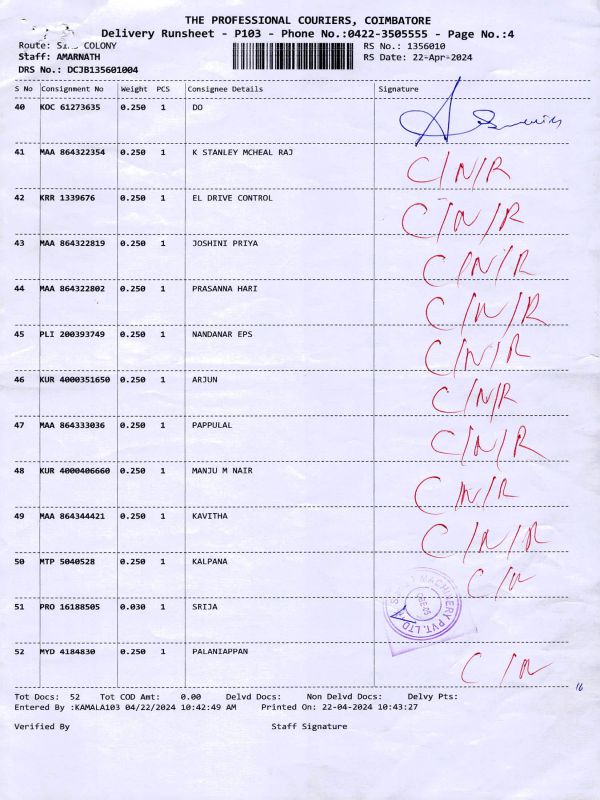 THE PROFESSIONAL COURIERS, COIMBATORE
Delivery Runsheet - P103 - Phone No.:0422-3505555 - Page No.:4
Route: COLONY RS No.: 1356010
Staff: AMARNATH RS Date: 22-Apr-2024
DRS No.: DCJB135601004
S No Consignment No Weight PCS Consignee Details Signature
40 KOC 61273635 0.250 1 DO
41 MAA 864322354 0.250 1 K STANLEY MCHEAL RAJ C/N/R
42 KRR 1339676 0.250 1 EL DRIVE CONTROL C/N/R
43 MAA 864322819 0.250 1 JOSHINI PRIYA C/N/R
44 MAA 864322802 0.250 1 PRASANNA HARI C/N/R
45 PLI 200393749 0.250 1 NANDANAR EPS C/N/R
46 KUR 4000351650 0.250 1 ARJUN C/N/R
47 MAA 864333036 0.250 1 PAPPULAL C/N/R
48 KUR 4000406660 0.250 1 MANJU M NAIR C/N/R
49 MAA 864344421 0.250 1 KAVITHA C/N/R
50 MTP 5040528 0.250 1 KALPANA C/N
51 PRO 16188505 0.030 1 SRIJA MACHINERY PVT. LTD.
52 MYD 4184830 0.250 1 PALANIAPPAN C/N
16
Tot Docs: 52 Tot COD Amt: 0.00 Delvd Docs: Non Delvd Docs: Delvy Pts:
Entered By :KAMALA103 04/22/2024 10:42:49 AM Printed On: 22-04-2024 10:43:27
Verified By Staff Signature